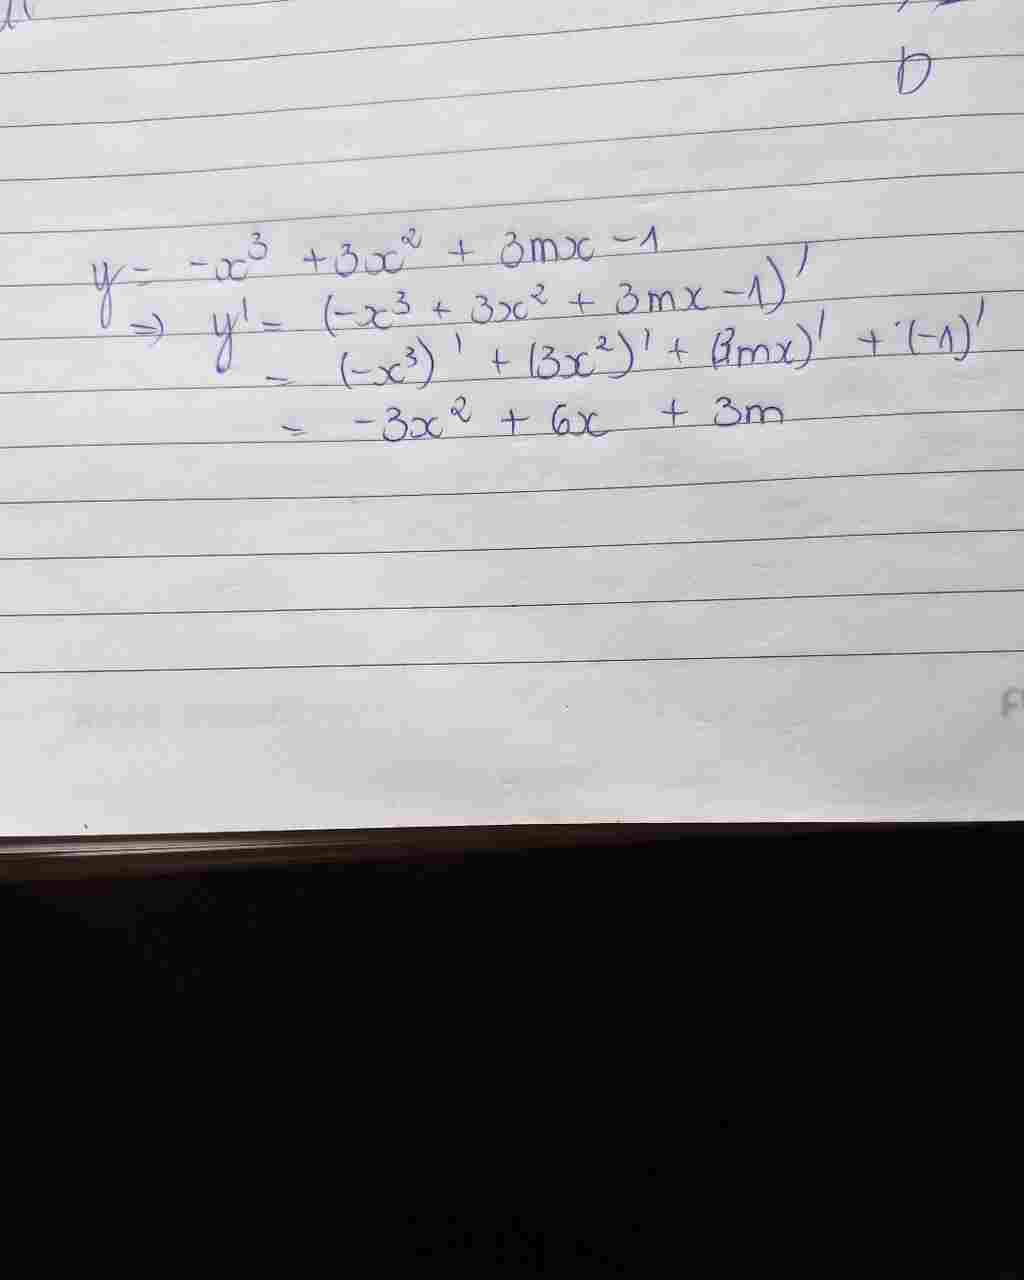 D
y = -x³ + 3x² + 3mx - 1
⇒ y' = (-x³ + 3x² + 3mx - 1)'
= (-x³)' + (3x²)' + (3mx)' + (-1)'
= -3x² + 6x + 3m